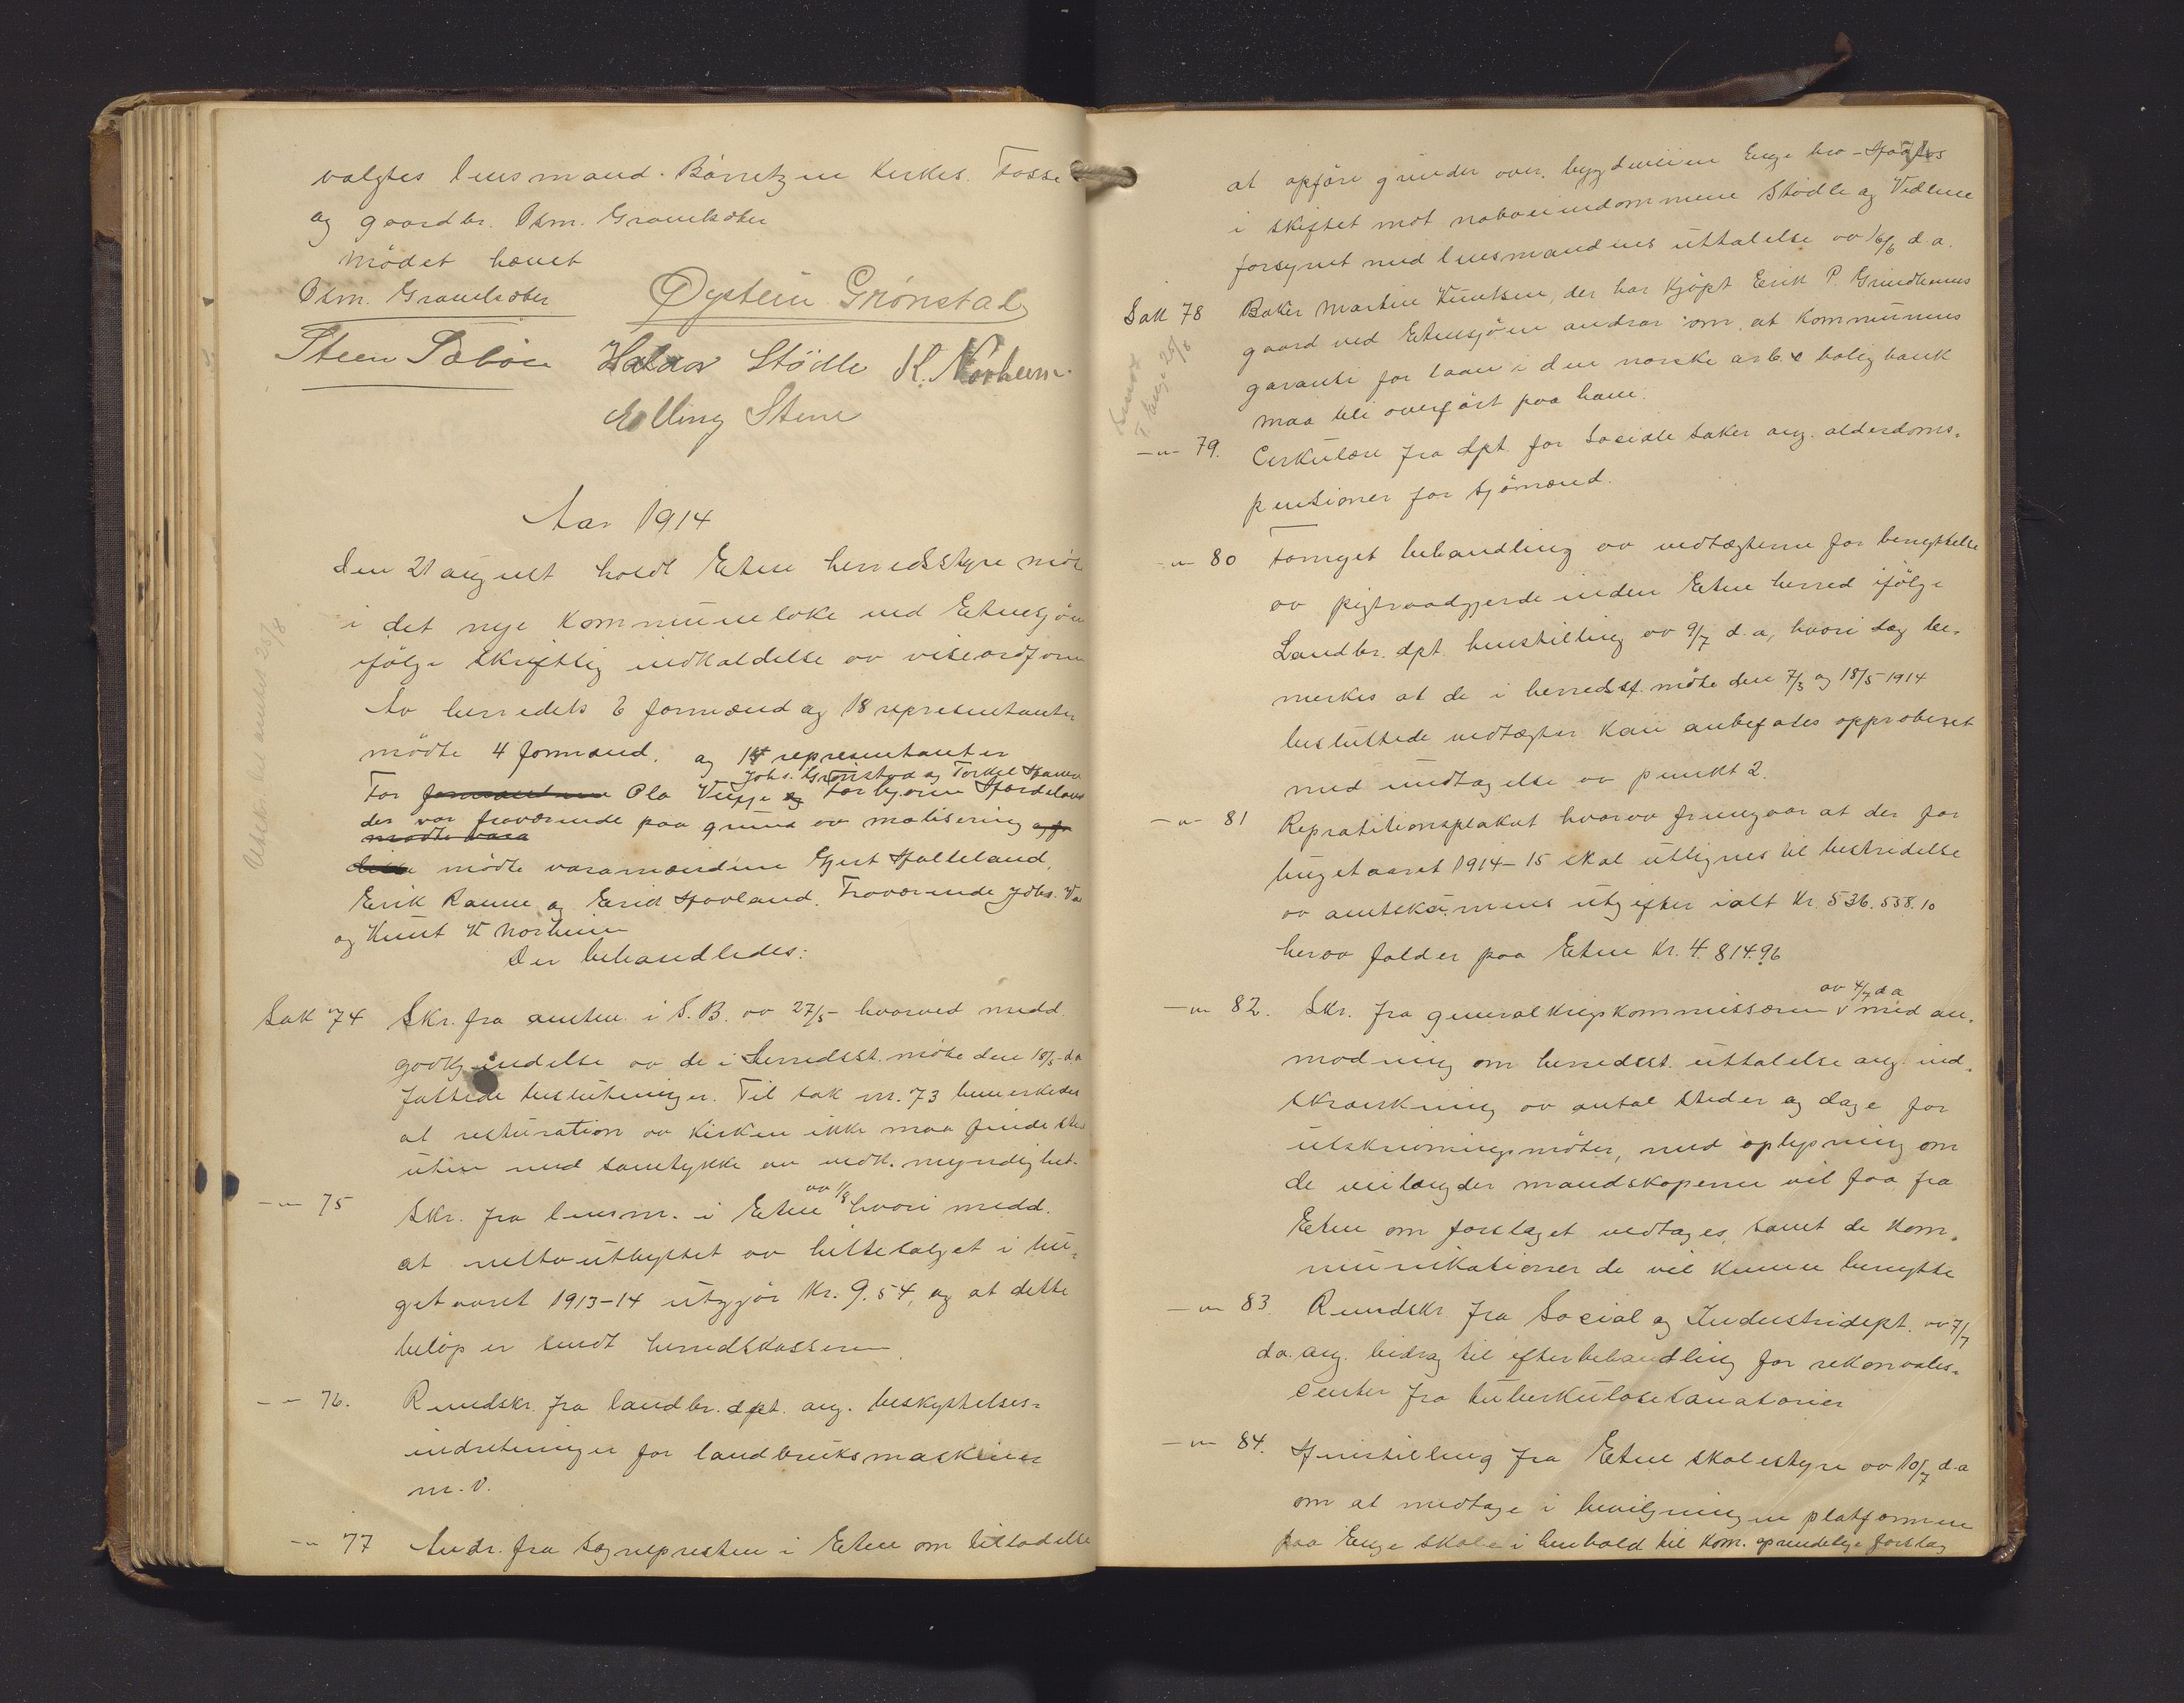 valgtes lensmand Børretzen kirkes. Fosse
og gaardbr. Osm. Gravelsæter
Mödet hævet
Osm. Gravelsæter Øystein Grønstad
Steen Sæbøe Halvor Stödle K. Norheim
Elling Stene
Aar 1914
Den 21 august holdt Etne herredsstyre möte
i det nye kommunelokale ved Etnesjöen
ifölge skriftlig indkaldelse av viseordförer
Av herredets 6 formænd og 18 representanter
mödte 4 formænd. og 14 representanter
Johs. Grönstad og Torkel
For formændene Ola og Torbjörn
der var fraværende paa grund av mobilisering
mödte vara
disse mödte varamændene Gjert Halleland,
Erik Ramne og Erik Hovland. Fraværende Johs.
og Knut K Norheim
Der behandledes:
Sak 74 Skr. fra amten. i S.B. av 27/5 - hvorved medd.
godkjendelse av de i herredsst. möte den 18/5 d.a
fattede beslutninger. Til sak nr. 73 bemerkedes
at restüration av kirken ikke maa finde sted
uten med samtykke av vedk. myndighet.
-"- 75 Skr. fra lensm. i Etne av 1/8 hvori medd.
at nettoutbyttet av hittesalget i bu-
getaaret 1913-14 utgjör Kr. 9.54, og at dette
belöp er sendt herredskasseren
-"- 76. Rundskr. fra landbr. dpt. ang. beskyttelses-
indretninger for landbruksmaskiner
m.v.
-"- 77 Andr. fra sognepresten i Etne om tilladelse
Utskr. til amtet 25/8
at opföre grinder over bygdeveien Enge bro -
i skiftet mot naboeiendommene Stödle og
forsynet med lensmandens uttalelse av 16/6 d.a.
Sak 78 Baker Martin Knutsen, der har kjöpt Erik P. Grindheims
gaard ved Etnesjöen andrar om, at kommunens
garanti for laan i den norske arb. & boligbank
maa bli overfört paa ham.
-"- 79. Cirkulære fra dpt. for Sociale saker ang. alderdoms-
pensioner for sjömænd.
-"- 80 Fornyet behandling av vedtægterne for benyttelse
av pigtraadgjerde inden Etne herred ifölge
Landbr. dpt. henstilling av 9/7 d.a, hvori dog be-
merkes at de i herredsst. möte den 7/3 og 18/5 1914
besluttede vedtægter kan anbefales approberet
med undtagelse av punkt 2.
-"- 81 Repratitionsplakat hvorav fremgaar at der for
bugetaaret 1914-15 skal utlignes til bestridelse
av amtskommunens utgifter ialt Kr. 536.558.10
herav falder paa Etne Kr. 4.814.96
av 4/7 d a
-"- 82. Skr. fra generalkrigskommissæren v med an-
modning om herredsst. uttalelse ang. ind-
skrænkning av antal steder og dage for
utskrivningsmöter, med oplysning om
de veilængder mandskaperne vil faa fra
Etne om forslaget vedtages, samt de kom-
munikationer de vil kunne benytte
-"- 83. Rundskr. fra Social og Industridept. av 7/7
d.a. ang. bidrag til efterbehandling for rekonvales-
center fra tuberkulosesanatorier
-"- 84. Henstilling fra Etne skolestyre av 10/7 d.a
om at medtage i bevilgningen platformen
paa Enge skole i henhold til kom. oprindelige forslag